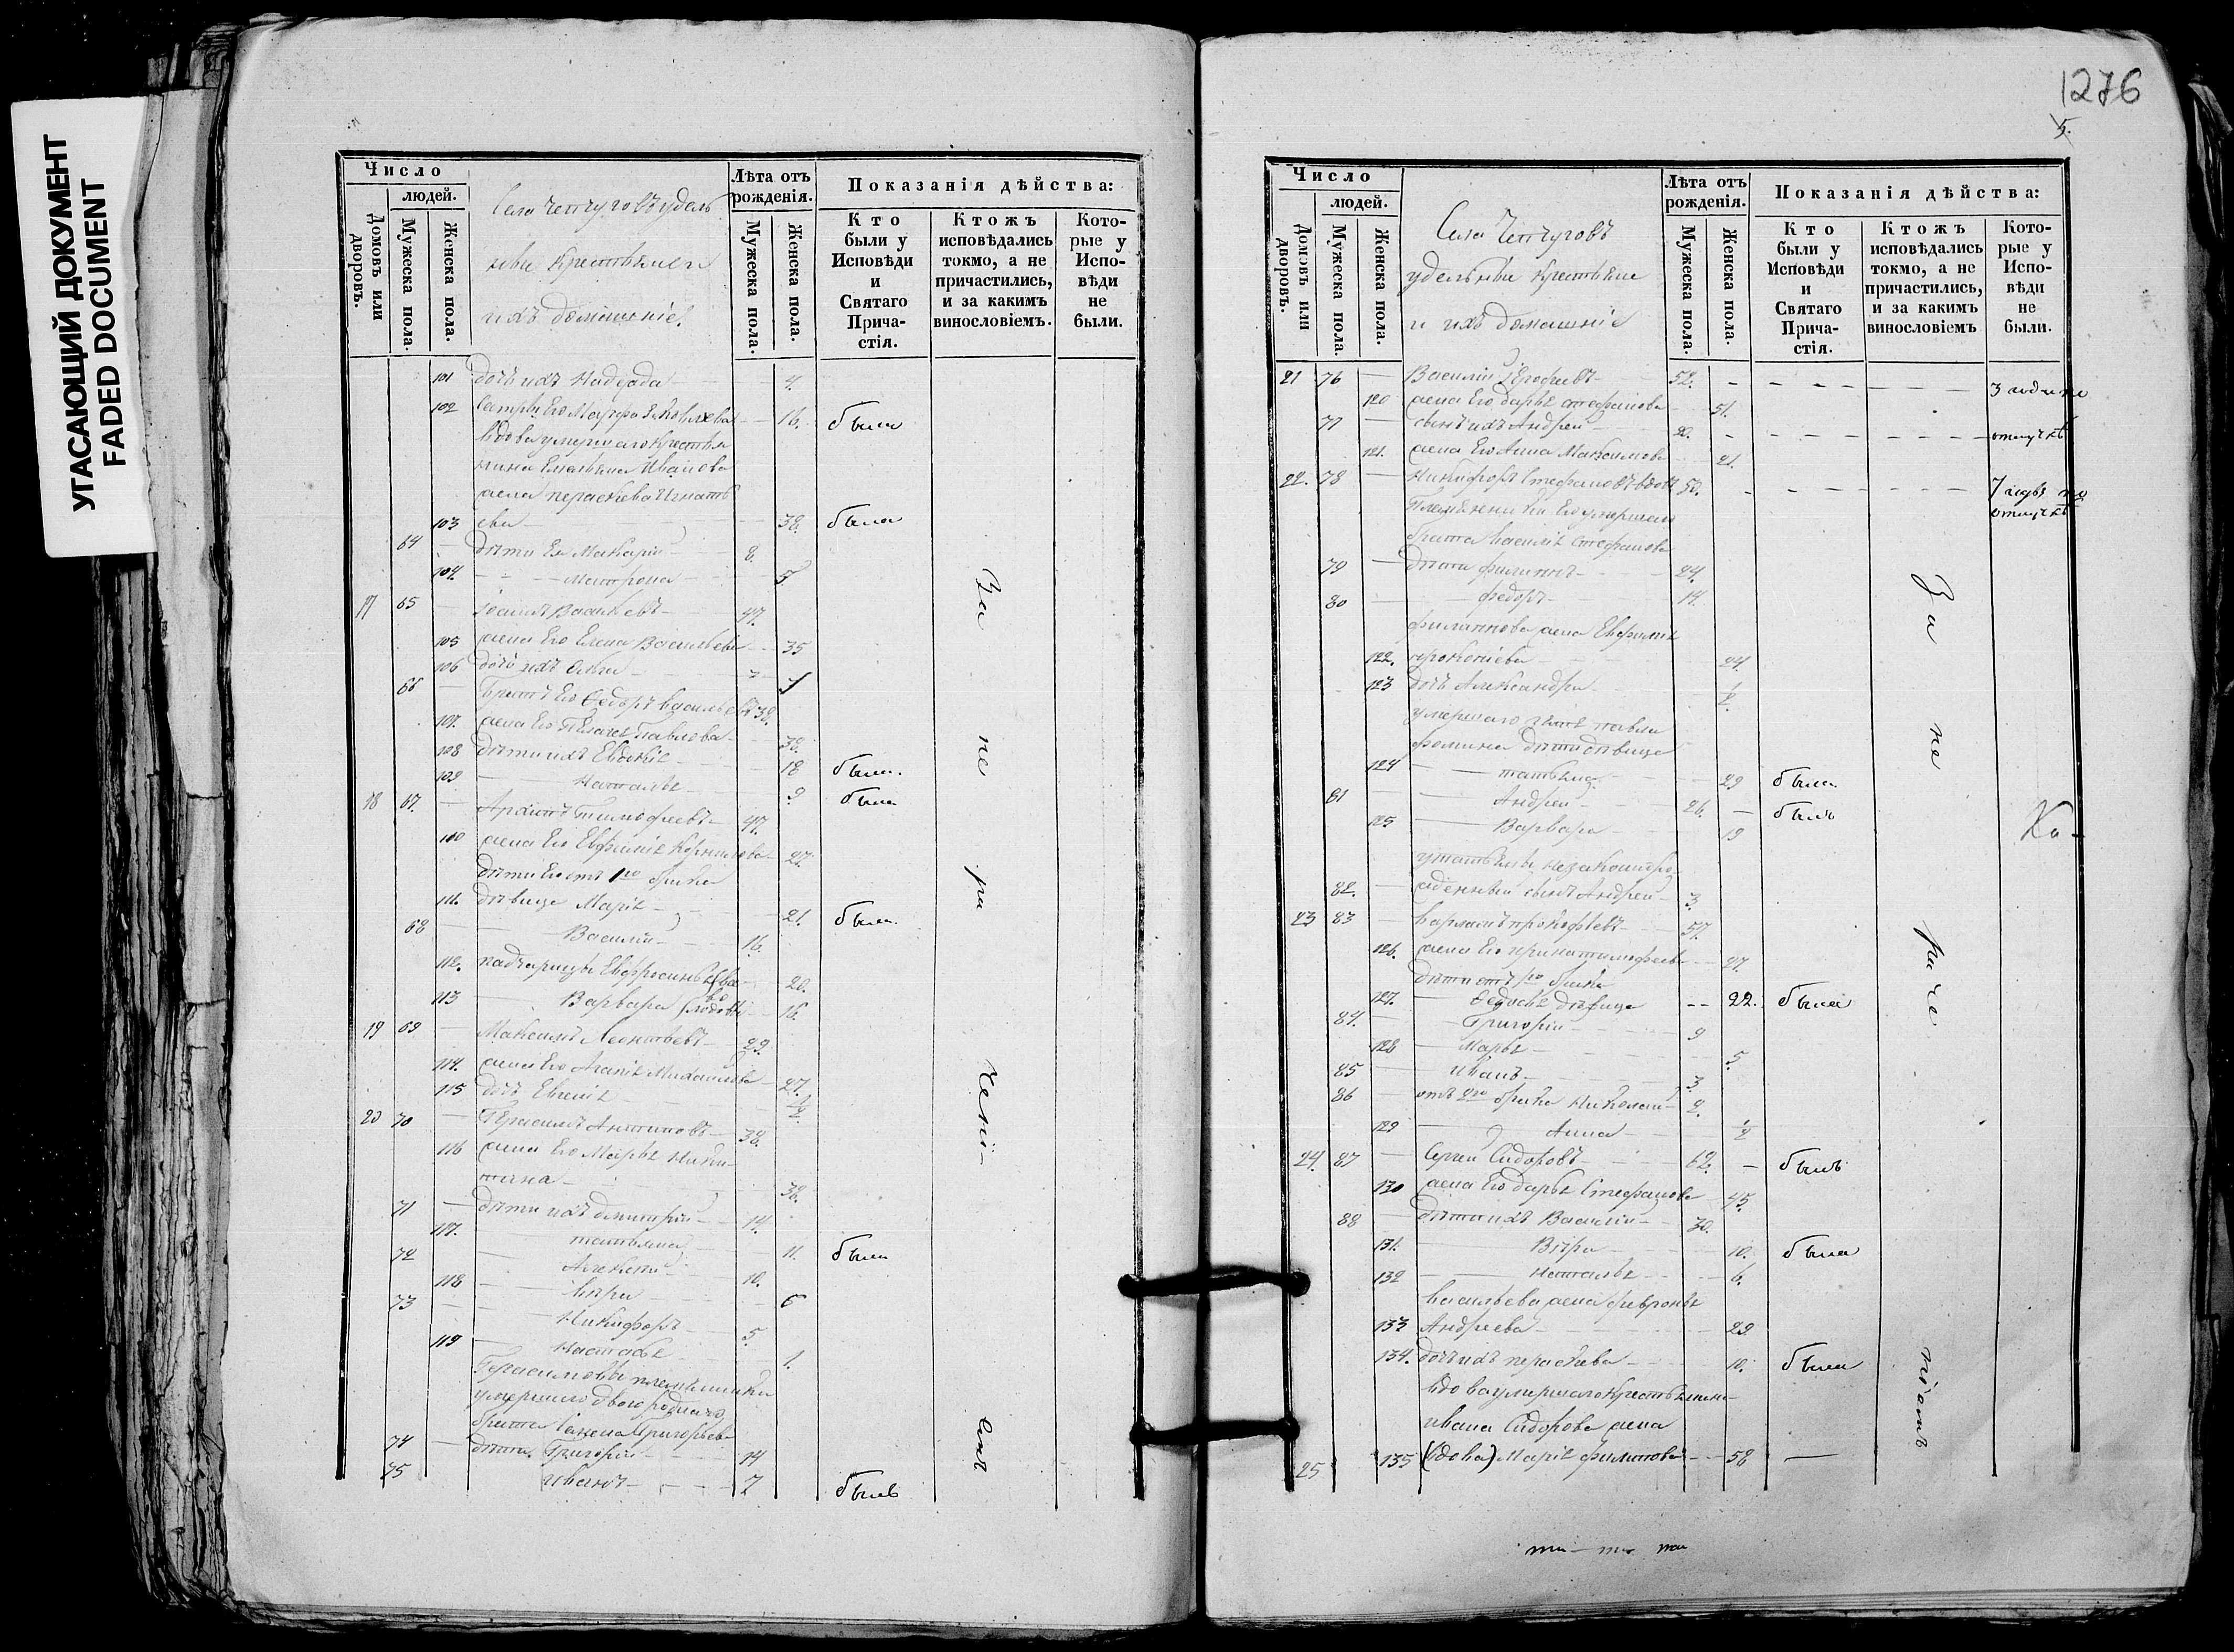 УГАСАЮЩИЙ ДОКУМЕНТ
FADED DOCUMENT
Число
людей.
Домовъ или дворовъ.
Мужеска пола.
Женска пола.
Села Чепчуговъ удель
ные крестьяне и
ихъ домашніе.
Лѣта отъ рожденія.
Мужеска пола.
Женска пола.
Показанія дѣйства:
Кто были у Исповѣди и Святаго Прича-стія.
Ктожъ исповѣдались токмо, а не причастились, и за какимъ винословіемъ.
Кото-рые у Испо-вѣди не были.
101 дочь ихъ Надежда 4.
102 сестра Его Марфа Яковлева 16. была
вдова умершаго крестья
нина Емельяна Иванова
жена Параскева Игнать
103 ева 38. была
64 дѣти Ея Макарій 8.
104. Матрона 5
17 65 Василевъ 47.
105 жена Его Елена Васильева 35
106 дочь ихъ
66 Братъ Его Ѳедоръ Васильевъ 38.
107. жена Его Павлова 38.
108 дѣти ихъ Евдокія 18 была.
109 Наталья 9 была
18 67. Тимофеевъ 47.
110 жена Его Евфимія Корнилова 27.
дѣти Его отъ 1го брака
111. дѣвица Марія 21. была.
68 Василій 16.
112. падчерицы Евфросинья 20.
113 Варвара 16.
19 69 Максимъ Леонтьевъ 29.
114. жена Его Агапія Михайлова 27.
115 дочь Евгенія 1/2
20 70 Герасимъ Антиповъ 38.
116 жена Его Марья Ники
тина 38.
71 дѣти ихъ Димитрій 14.
117. татьяна 11. была
72 Алексѣй 10.
118 Вѣра 6
73 Никифоръ 5.
119 Настасья 1.
Герасимовы племянники
умершаго двоюроднаго
брата Григорьева
74 дѣти Григорій 14
75 иванъ 7 былъ
За не ра чені емъ
1276
5.
Число
людей.
Домовъ или дворовъ.
Мужеска пола.
Женска пола.
Села Чепчуговъ
удельные крестьяне
и ихъ домашніе
Лѣта отъ рожденія.
Мужеска пола.
Женска пола.
Показанія дѣйства:
Кто были у Исповѣди и Святаго Прича-стія.
Ктожъ исповѣдались токмо, а не причастились, и за какимъ винословіемъ
Кото-рые у Испо-вѣди не были.
21 76 Василій Ерофеевъ 52. 3 года по
120 жена Его Дарья Стефанова 51.
77 сынъ ихъ Андрей 22. отлучкѣ
121. жена Его Анна Максимова 21.
22. 78 Никифоръ Стефановъ вдовъ 50. 7 годъ по
Племянники Его умершаго отлучкѣ
брата Василія Стефанова
79 дѣти филиппъ 24.
80 федоръ 14.
филиппова жена Евфимія
122. прокопіева 24.
123 дочь Александра 1/2.
умершаго павла
фомина дѣти дѣвица
124 татьяна 29 была
81 Андрей 26. былъ
125 Варвара 19
у татьяны незаконноро
82. жденный сынъ Андрей 3.
23 83 Варламъ прокофьевъ 57.
126. жена Его ирина тимофеева 47.
дѣти отъ 1го брака
127. Ѳедосья дѣвица 22. была
84. Григорій 9
128 Марья 5.
85 иванъ 3.
86 отъ 2го брака Николай 2.
129 Анна 1/2
24. 87 Сергѣй Сидоровъ 62. былъ
130 жена Его Дарья Стефанова 45.
88 дѣти ихъ Василій 30.
131. Вѣра 10. была
132 Наталья 6.
Васильева жена февронья
133 Андреева 29
134. дочь ихъ параскева 10. была
вдова умершаго крестьянина
ивана Сидорова жена
25 135 (вдова) Марія филиппова 58
За не ра че ніемъ
Ко-